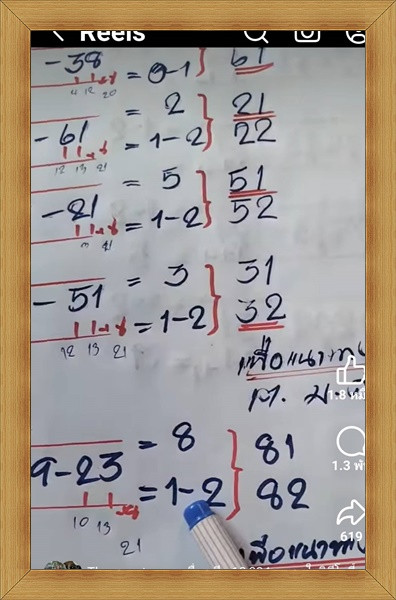 Reels
-38 = 0-1 } 61
11 12 20
= 2 } 21
-61 = 1-2 } 22
12 13 21
= 5 } 51
-21 = 1-2 } 52
= 3 } 31
-51 = 1-2 } 32
12 13 21
เพื่อแนวทาง
1.8 หมื่
= 8 } 81
9-23 = 1-2 } 82
1.3 พั
10 13
21
619
เพื่อแนวทาง